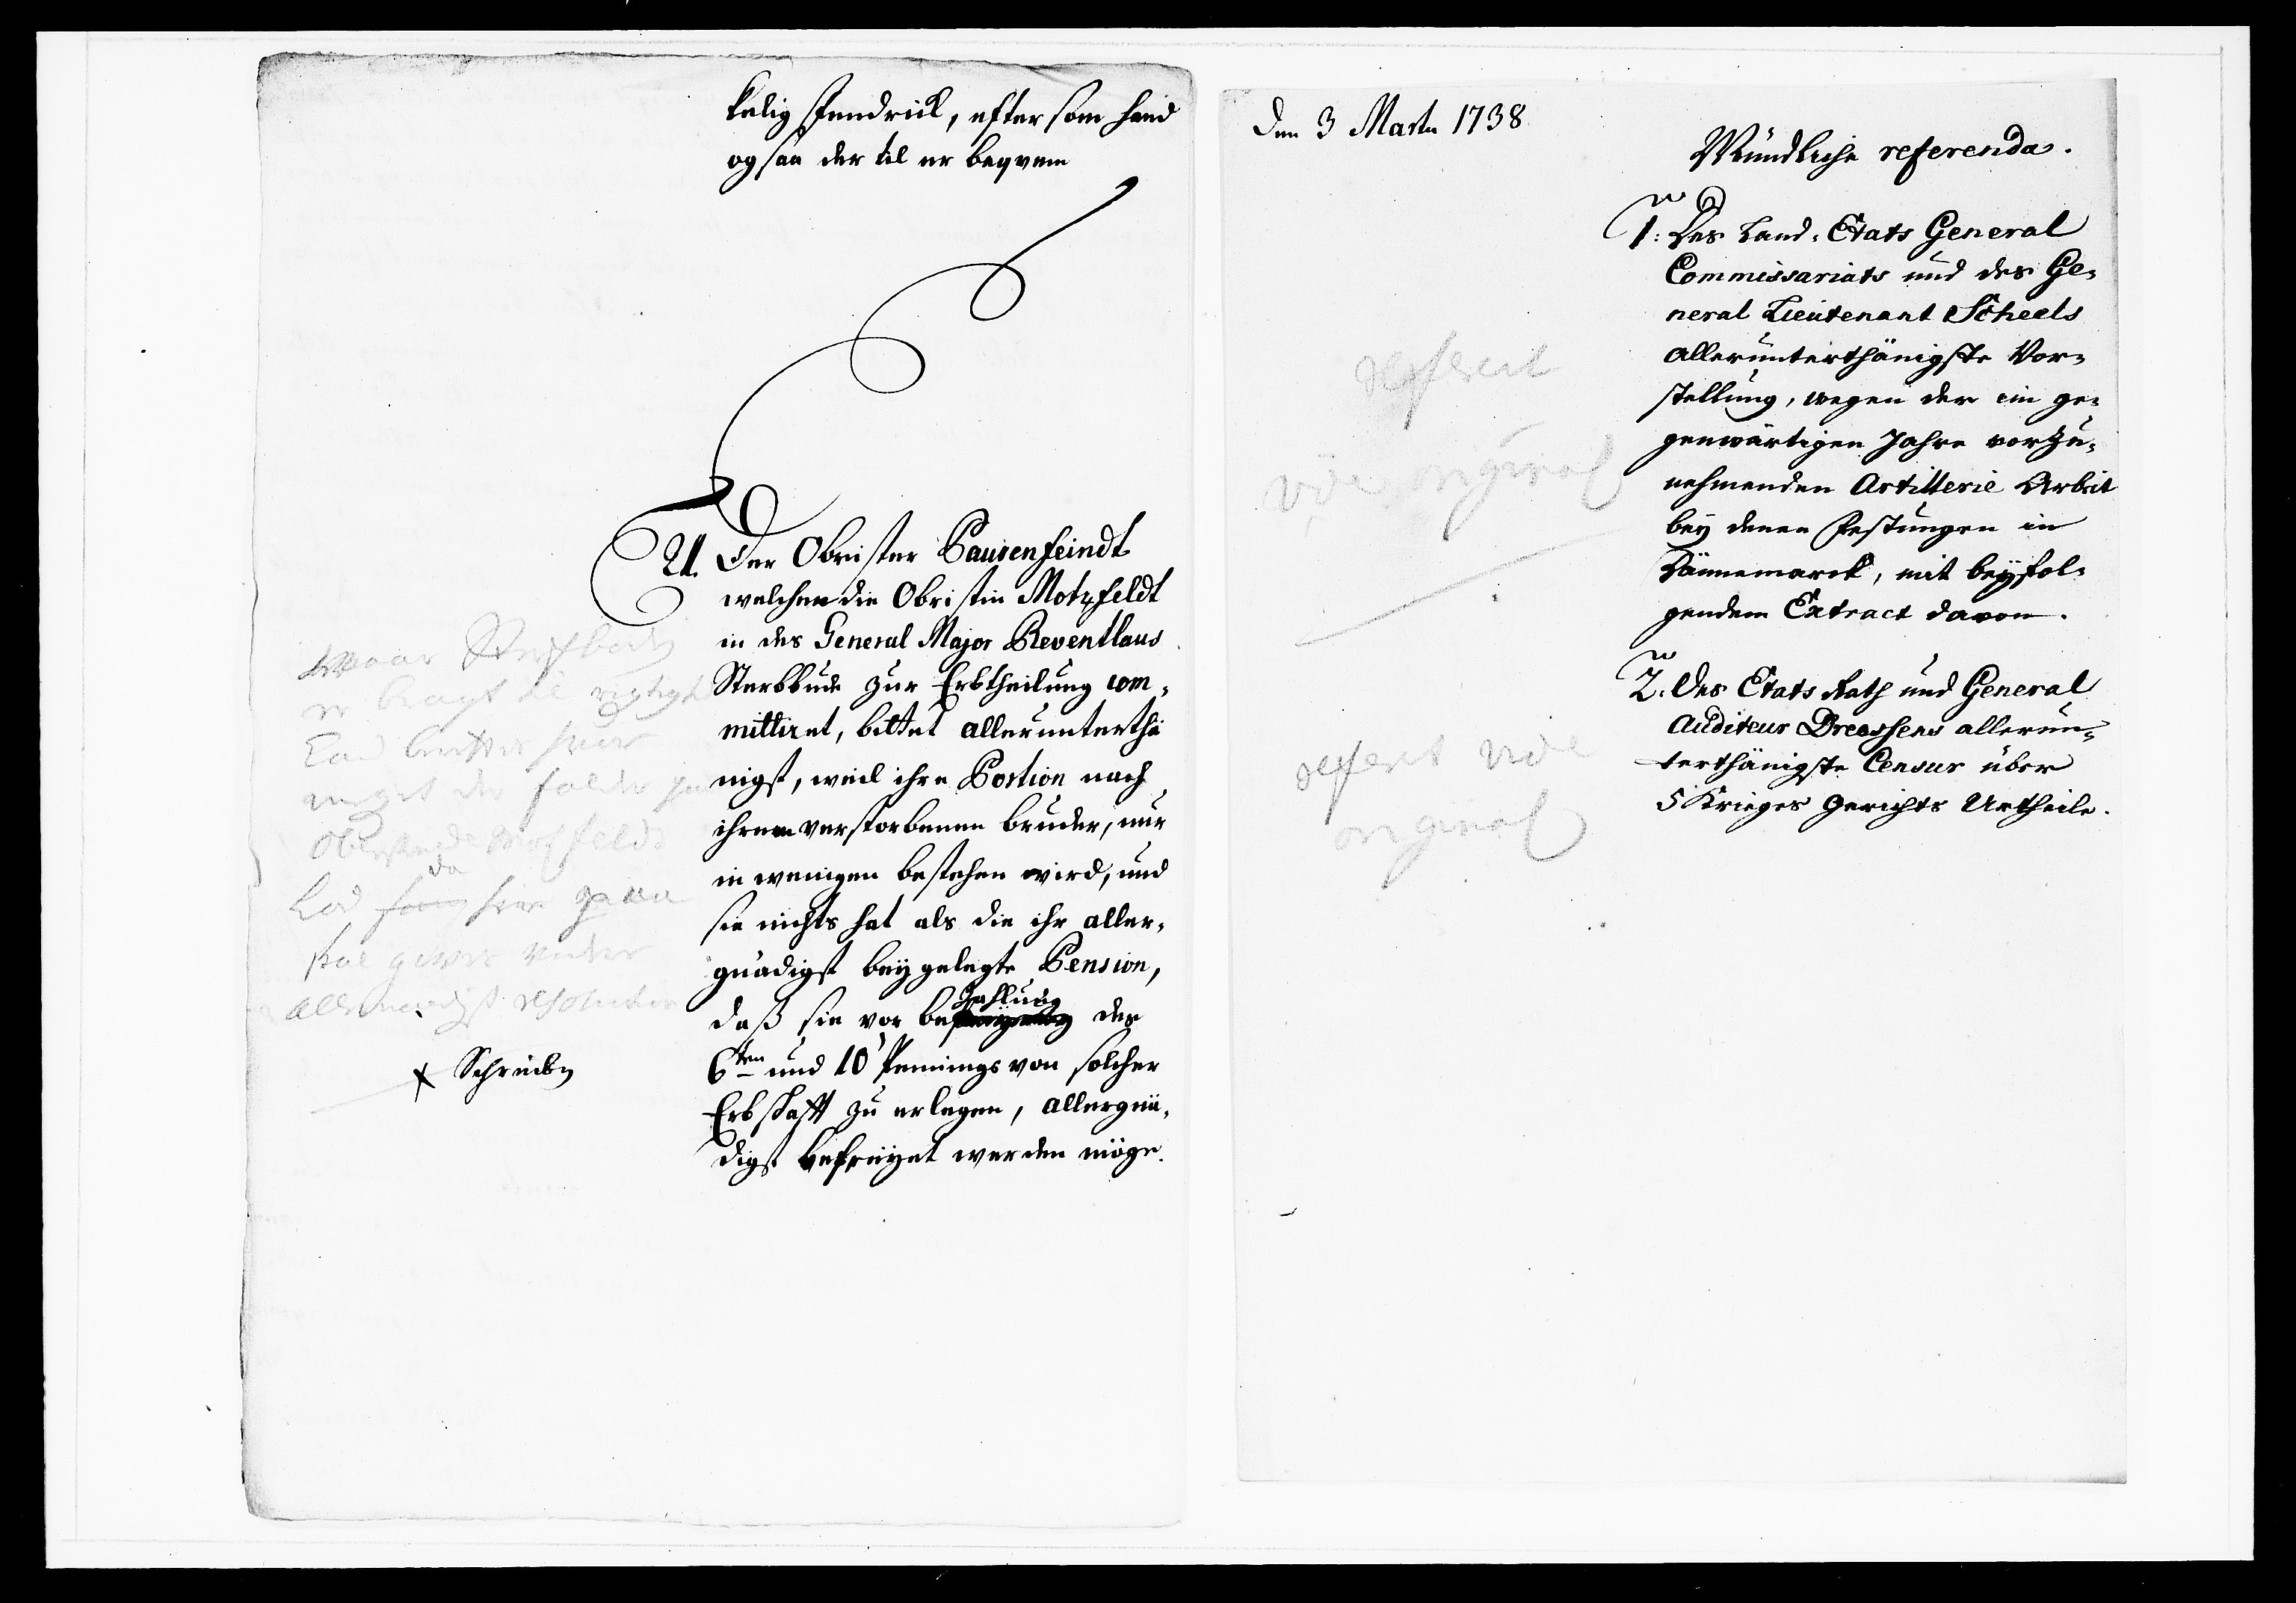 kelig Fendrick, eftersom hand
ogsaa der til er beqvem
21. Der Obrister Pausenfeindt
welcher die Obristin Motzfeldt
in des General Major Reventlaus
Sterbbude zur Erbtheilung com¬
mittiret, bittet allerunterthä
nigst, weil ihre Portion nach
ihrem verstorbenen bruder, nur
in wenigen bestehen wird, und
sie nichts hat als die ihr aller¬
gnädigst beygelegte Pension,
daß sie vor bezahlung des
6ten und 10 Pennings von solcher
Erbschafft zu erlegen, allergnä¬
digst befreyet werden möge.
skal gives videre
allernaadigst resolution
Schreiben
Den 3 Martii 1738
Mündliche referenda.
refererit
vide original
1. Des Land-Etats General
Commissariats und des Ge¬
neral Lieutenant Scheels
allerunterthänigste Vor¬
stellung, wegen der im ge¬
genwärtigen Jahre vorzu¬
nehmenden Artillerie Arbeit
bey denen Festungen in
Dännemarck, mit beyfol¬
gendem Extract davon.
refererit vide
original
2. Des Etats Rath und General
Auditeur Dreossens allerun¬
terthänigste Censur über
5 Krieges Gerichts Urtheile.